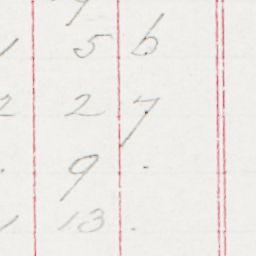 1 5 6
2 2 7
. 9 .
1 13 .